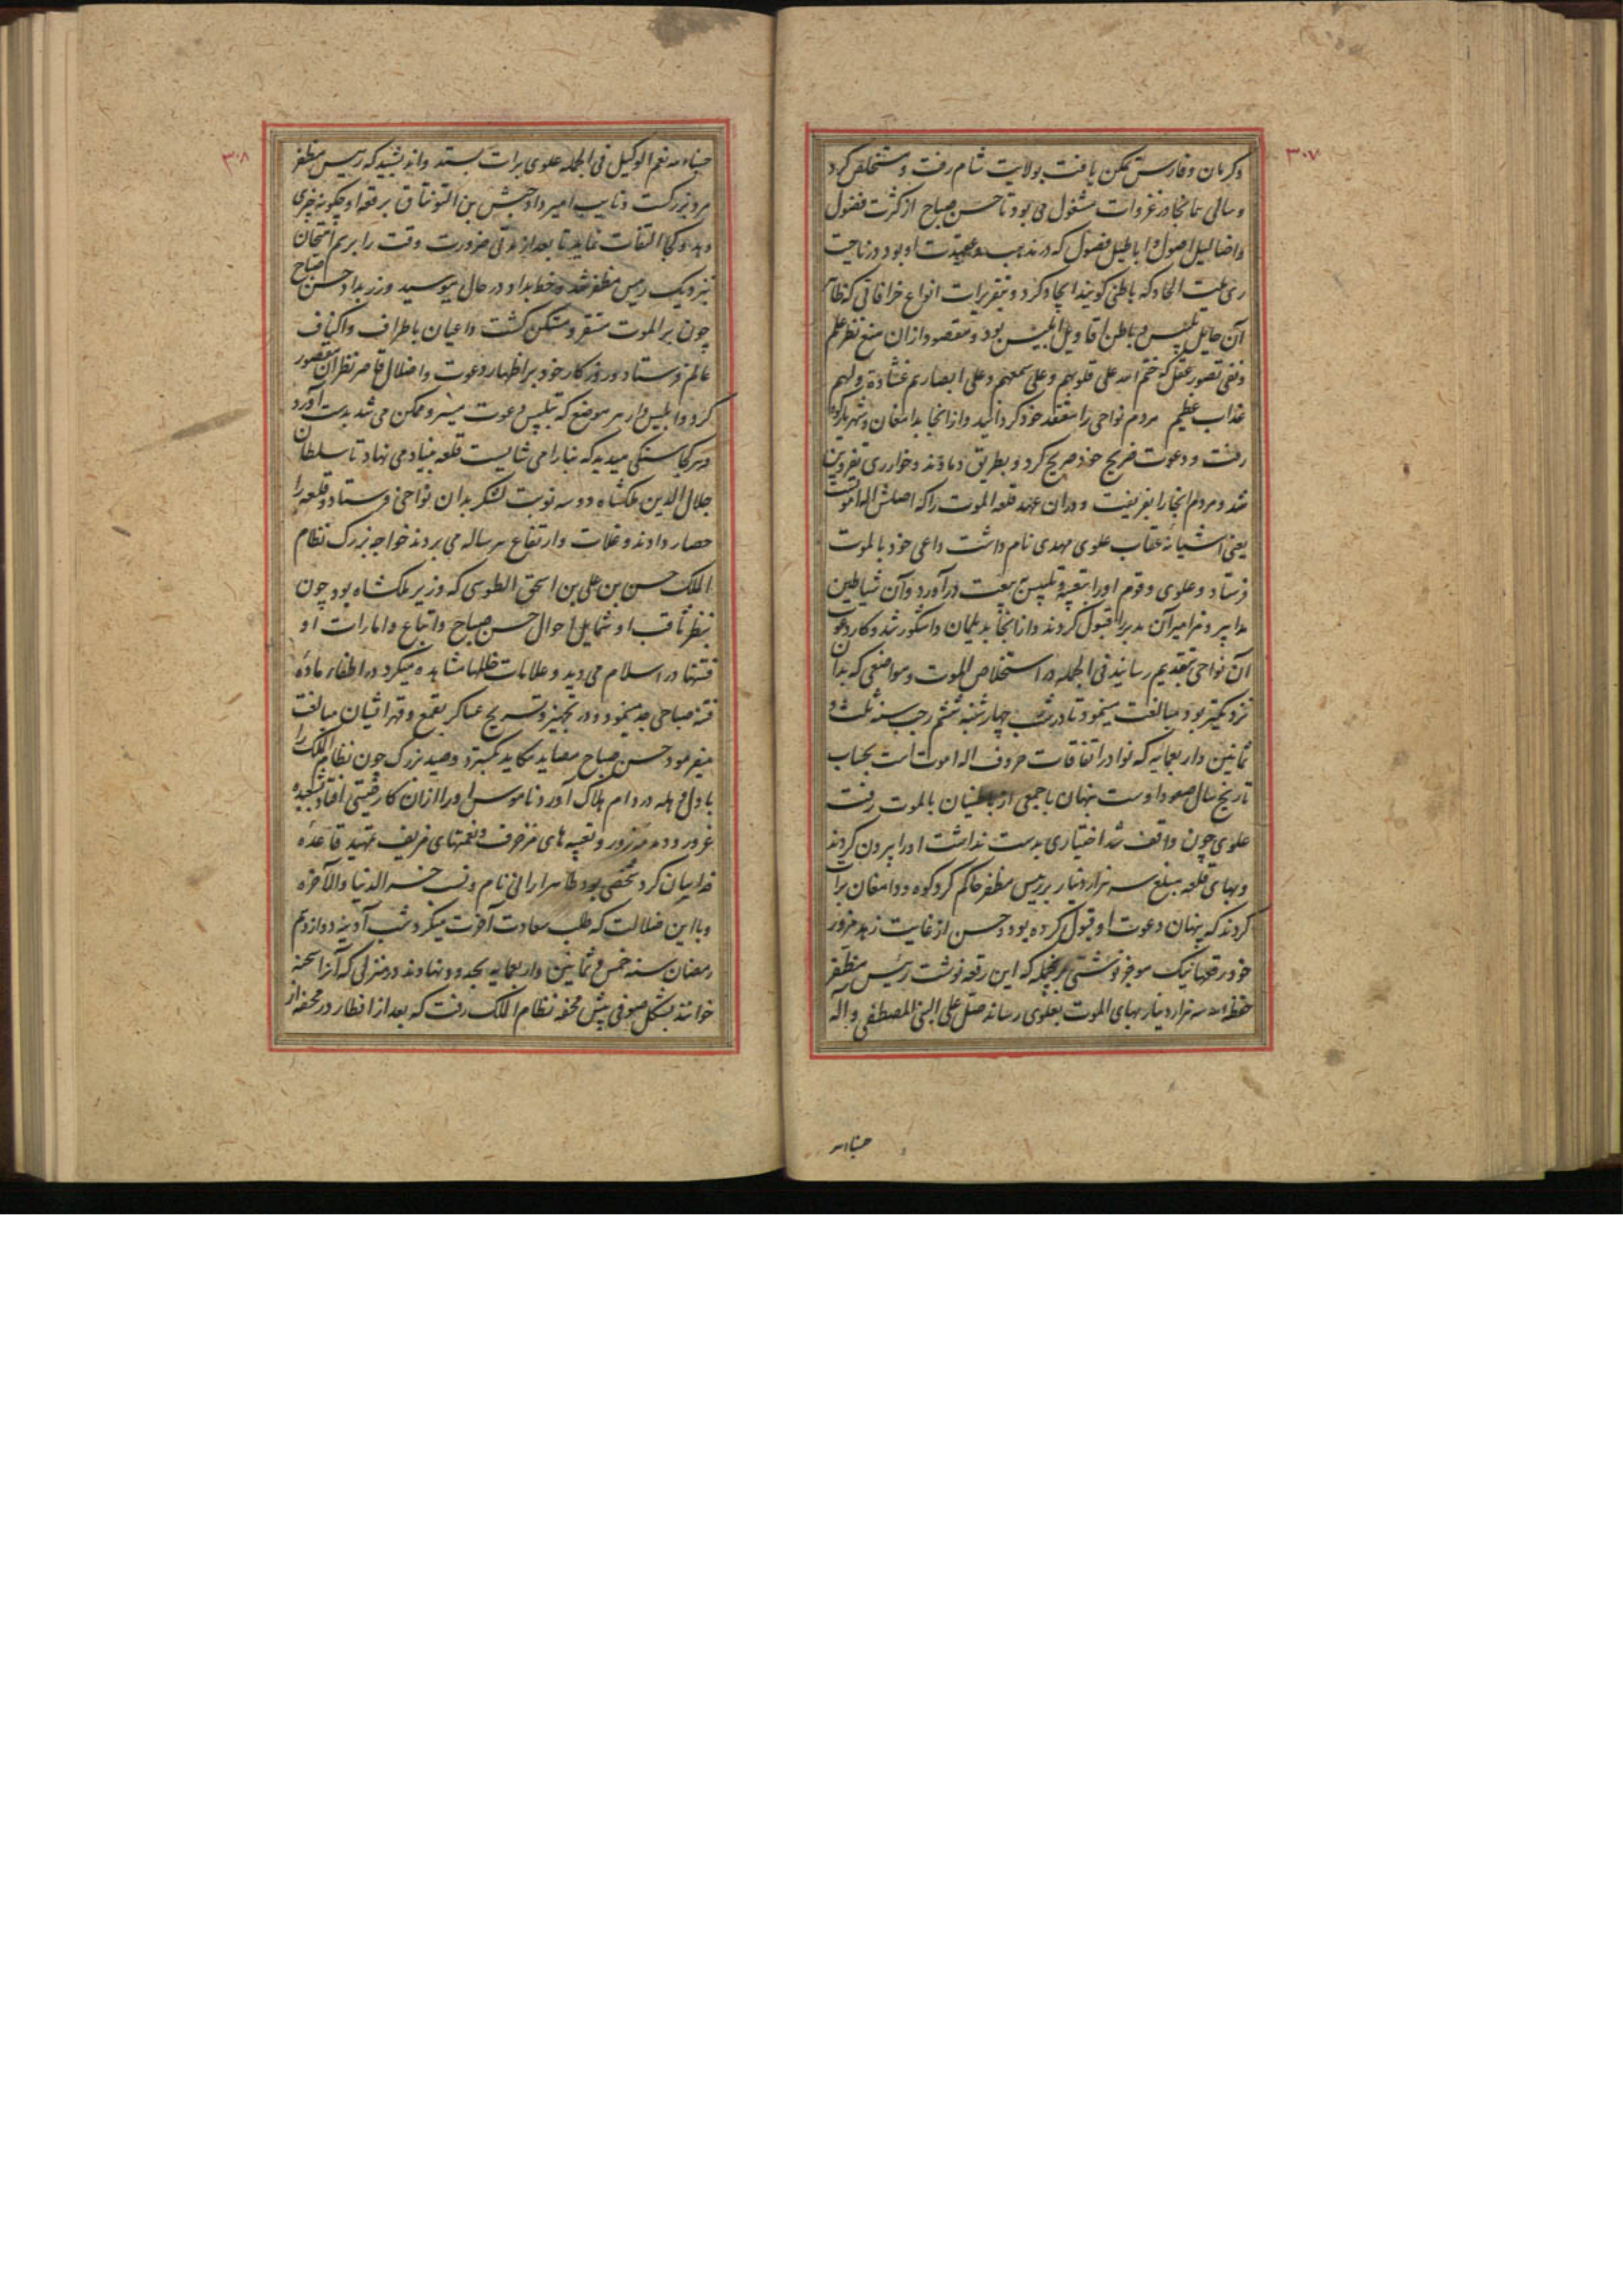 ۳۰۷
وکرمان وفارس تمکن یافت بولایت شام رفت ومستخلص کرد
وسالی تا بجا در غزوات مشغول می بود تا حسن صباح از کثرت فضول
واضالیل اصول و اباطیل فصول که در مذهب وعقیدت او بود در ناحیت
ری علت الحاد که باطنی کویند ایجاد کرد و بتقریرات انواع خرافاتی که ظاهر
آن حایل تلبیس و باطن اقاویل ابلیس بود و مقصود ازان منع نظر علم
ونفی تصور عقل که ختم الله علی قلوبهم وعلی سمعهم وعلی ابصارهم غشاوة ولهم
عذاب عظیم مردم نواحی را معتقد خود کردانید وازانجا بدامغان وشهریارکوه
رفت و دعوت صریح خود صریح کرد و بطریق دماوند وخوار ری بقزوین
شد ومردم انجا را بفریفت ودران عهد قلعه الموت را که اصلش اله اموت
یعنی اشیانه عقاب علوی مهدی نام داشت داعی خود بالموت
فرستاد وعلوی وقوم اورا بتعبیه وتلبیس ببیعت درآورد وآن شیاطین
مدابیر ومزامیر آن مدبر را قبول کردند وازانجا بدیلمان واشکور شد وکار دعوت
آن نواحی بتقدیم رسانید فی الجمله در استخلاص الموت ومواضعی که بدان
نزدیکتر بود مبالغت مینمود تا در شب چهارشنبه ششم رجب سنه ثلث و
ثمانین واربعمایه که نوادر اتفاقات حروف اله اموت است بحساب
تاریخ سال صعود اوست پنهان با جمعی از باطنیان بالموت رفت
علوی چون واقف شد اختیاری بدست نداشت اورا بیرون کردند
وبهای قلعه بمبلغ سه هزار دینار بر رییس مظفر حاکم کردکوه ودامغان برات
کردند که پنهان دعوت او قبول کرده بود وحسن از غایت زهد مزور
خود رقعها نیک موجز نوشتی برینجمله که این رقعه نوشت رئیس مظفر
حفظه الله سه هزار دینار بهای الموت بعلوی رساند صل علی النبی المصطفی وآله
حسبنا الله
۳۰۸
حسبنا الله نعم الوکیل فی الجمله علوی برات بستد واندیشید که رییس مظفر
مرد بزرکست ونایب امیر داد حبشی بن التونتاق برقعه او چکونه چیزی
دهد وکجا التفات نماید تا بعد از مدتی ضرورت وقت را برسم امتحان
نزدیک رییس مظفر شد وخط بداد در حال ببوسید وزر بداد حسن صباح
چون بر الموت مستقر ومتمکن کشت داعیان باطراف واکناف
عالم فرستاد وروزکار خود بر اظهار دعوت واضلال قاصر نظران مقصور
کرد وابلیس وار هر موضع که تلبیس دعوت میسر وممکن می شد بدست آورد
وهرکجا سنکی میدید که بنا را می شایست قلعه بنیاد می نهاد تا سلطان
جلال الدین ملکشاه دو سه نوبت لشکر بدان نواحی فرستاد وقلعه را
حصار دادند وغلات وارتفاع سرساله می بردند خواجه بزرک نظام
الملک حسن بن علی بن اسحق الطوسی که وزیر ملکشاه بود چون
بنظر ثاقب او شمایل احوال حسن صباح واتباع وامارات او
فتنها در اسلام می دید وعلامات خللها مشاهده میکرد در اطفاء ماده
فتنه صباحی جد مینمود ودر تجهیز وتسریح عساکر بقمع وقهر ایشان مبالغت
میفرمود حسن صباح مصاید مکاید بکسترد وصید بزرک چون نظام الملک را
باول وهله در دام هلاک آورد وناموس او را ازان کار صیتی افتاد بشعبده
غرور ودمدمه زور وتعبیه های مزخرف ونغمتهای مزیف تمهید قاعده
فداییان کرد شخصی بود طاهر ارانی نام ونسب خسر الدنیا والآخره
وبا این ضلالت که طلب سعادت آخرت میکرد شب آدینه دوازدهم
رمضان سنه خمس وثمانین واربعمایه بحدود نهاوند ودر منزلی که آنرا سحنه
خوانند بشکل صوفی پیش محفه نظام الملک رفت که بعد از افطار در محفه از